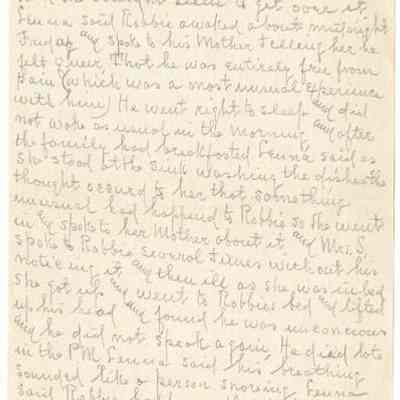 get over it.
Lenna said Robbie awaked about midnight
Friday and spoke to his Mother telling her he
felt queer. That he was entirely free from
pain (which was a most unusual experience
with him) He went right to sleep and did
not woke as usual in the morning and after
the family had breakfasted Lenna said as
she stood at the sink washing the dishes the
thought occurd to her that something
unusual had happend to Robbie so she went
in and spoke to her Mother about it and Mrs. S.
spoke to Robbie several times without his
noticeing it and then ill as she was in bed
she got up and went to Robbies bed and lifted
up his head and found he was unconcious
and he did not speak again, He died late
in the P.M. Lenna said his breathing
sounded like a person snoring. Lenna
said Robbie